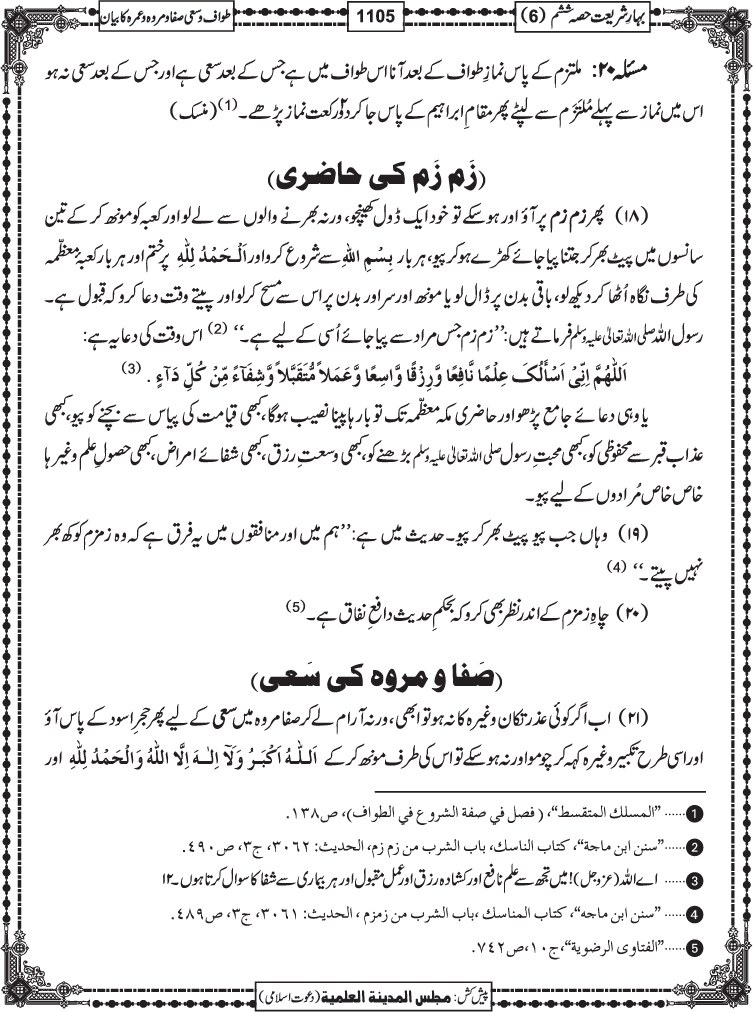 بہارِ شریعت حصہ ششم (6)
1105
طواف و سعی صفا و مروہ و عمرہ کا بیان
مسئلہ ۲۰: ملتزم کے پاس نمازِ طواف کے بعد آنا اس طواف میں ہے جس کے بعد سعی ہے اور جس کے بعد سعی نہ ہو
اس میں نماز سے پہلے مُلتَزَم سے لپٹے پھر مقامِ ابراہیم کے پاس جا کر دو۲ رکعت نماز پڑھے۔ (1) (منسک)
(زَم زَم کی حاضری)
(۱۸) پھر زم زم پر آؤ اور ہو سکے تو خود ایک ڈول کھینچو، ورنہ بھرنے والوں سے لے لو اور کعبہ کو مونھ کر کے تین
سانسوں میں پیٹ بھر کر جتنا پیا جائے کھڑے ہو کر پیو، ہر بار بِسْمِ اللہِ سے شروع کرو اور اَلْحَمْدُ لِلّٰہِ پر ختم اور ہر بار کعبۂ معظّمہ
کی طرف نگاہ اُٹھا کر دیکھ لو، باقی بدن پر ڈال لو یا مونھ اور سر اور بدن پر اس سے مسح کر لو اور پیتے وقت دعا کرو کہ قبول ہے۔
رسول اللہ صلی اللہ تعالیٰ علیہ وسلم فرماتے ہیں: ’’زم زم جس مراد سے پیا جائے اُسی کے لیے ہے۔‘‘ (2) اس وقت کی دعا یہ ہے:
اَللّٰھُمَّ اِنِّیْ اَسْأَلُکَ عِلْمًا نَّافِعًا وَّرِزْقًا وَّاسِعًا وَّعَمَلاً مُّتَقَبَّلاً وَّشِفَآءً مِّنْ کُلِّ دَآءٍ . (3)
یا وہی دعائے جامع پڑھو اور حاضری مکہ معظّمہ تک تو بارہا پینا نصیب ہوگا، کبھی قیامت کی پیاس سے بچنے کو پیو، کبھی
عذاب قبر سے محفوظی کو، کبھی محبتِ رسول صلی اللہ تعالیٰ علیہ وسلم بڑھنے کو، کبھی وسعتِ رزق، کبھی شفائے امراض، کبھی حصولِ علم وغیرہا
خاص خاص مُرادوں کے لیے پیو۔
(۱۹) وہاں جب پیو پیٹ بھر کر پیو۔ حدیث میں ہے: ’’ہم میں اور منافقوں میں یہ فرق ہے کہ وہ زمزم کوکھ بھر
نہیں پیتے۔‘‘ (4)
(۲۰) چاہِ زمزم کے اندر نظر بھی کرو کہ بحکمِ حدیث دافعِ نفاق ہے۔ (5)
(صَفا و مروہ کی سَعی)
(۲۱) اب اگر کوئی عذر تکان وغیرہ کا نہ ہو تو ابھی، ورنہ آرام لے کر صفا مروہ میں سعی کے لیے پھر حجرِ اسود کے پاس آؤ
اور اسی طرح تکبیر وغیرہ کہہ کر چومو اور نہ ہو سکے تو اس کی طرف مونھ کر کے اَللّٰہُ اَکْبَرُ وَلَآ اِلٰہَ اِلَّا اللّٰہُ وَالْحَمْدُ لِلّٰہِ اور
1 ......”المسلك المتقسط“، (فصل في صفة الشروع في الطواف)، ص۱۳۸.
2 ......”سنن ابن ماجة“، كتاب الناسك، باب الشرب من زم زم، الحديث: ۳۰۶۲، ج۳، ص۴۹۰.
3 ...... اے اللہ (عزوجل)! میں تجھ سے علمِ نافع اور کشادہ رزق اور عملِ مقبول اور ہر بیماری سے شفا کا سوال کرتا ہوں۔ ۱۲
4 ...... ”سنن ابن ماجه“، كتاب المناسك، باب الشرب من زمزم، الحديث: ۳۰۶۱، ج۳، ص۴۸۹.
5 ......”الفتاوى الرضوية“، ج۱۰، ص۷۴۲.
پیش کش: مجلس المدينة العلمية (دعوتِ اسلامی)